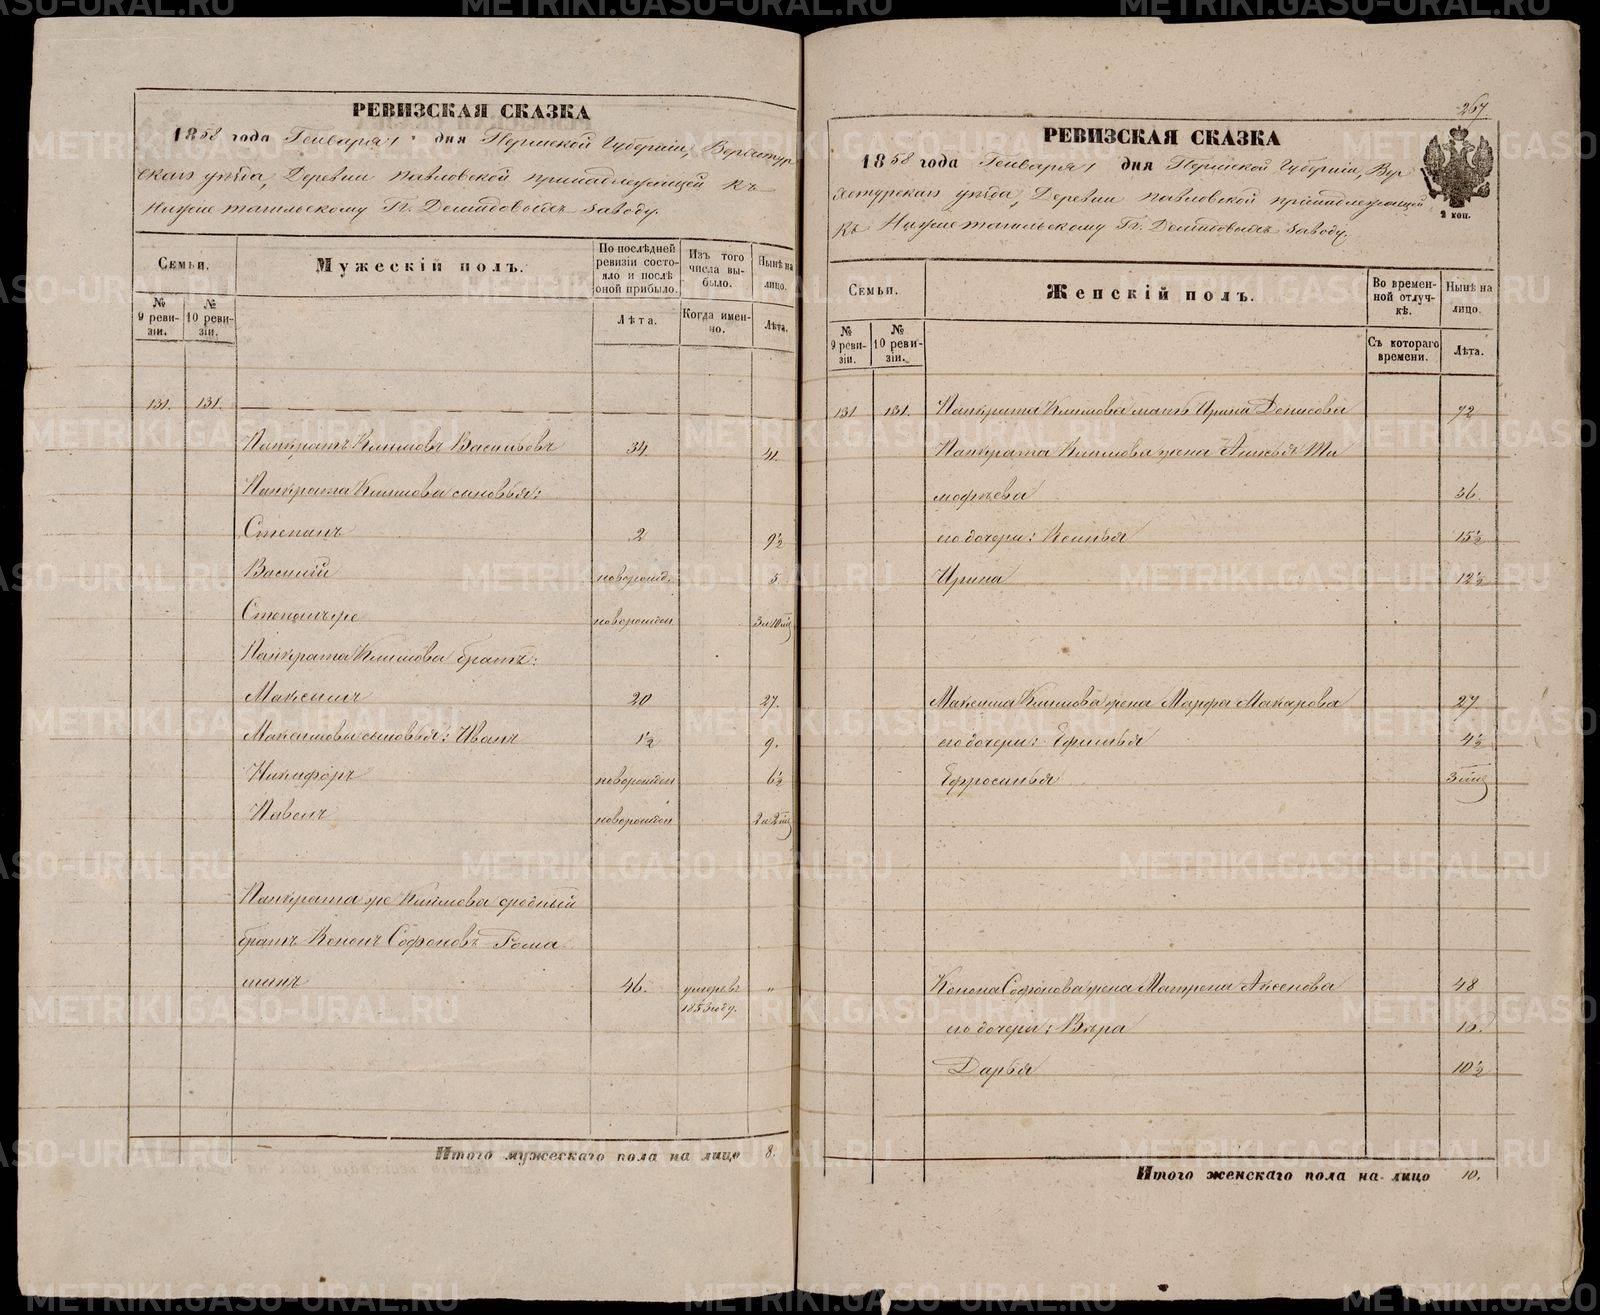 РЕВИЗСКАЯ СКАЗКА
1858 года Генваря 1 дня Пермской Губерніи, Верхотур
скаго уѣзда, Деревни Павловской принадлежащей къ
Нижнетагильскому Гг. Демидовыхъ заводу.
Семьи.
Мужескій полъ.
По послѣдней ревизіи состояло и послѣ оной прибыло.
Изъ того числа выбыло.
Нынѣ на лицо.
№ 9 ревизіи.
№ 10 ревизіи.
Лѣта.
Когда именно.
Лѣта.
131. 131.
Панкратъ Климовъ Васильевъ 34. 41.
Панкрата Климова сыновья:
Степанъ 2 9½
Василій новорожд. 5
Степанъ же новорожден 3 и 10 мц
Панкрата Климова братъ:
Максимъ 20 27.
Максимовы сыновья: Иванъ 1½ 9.
Никифоръ новорожден 6½
Павелъ новорожден 2 и 2 мц
Панкрата же Климова сродный
братъ Кононъ Софоновъ Рома
шинъ 46. умеръ въ "
1853 году.
Итого мужескаго пола на лицо 8.
267.
РЕВИЗСКАЯ СКАЗКА
1858 года Генваря 1 дня Пермской Губерніи, Вер
хотурскаго уѣзда, Деревни Павловской принадлежащей
къ Нижнетагильскому Гг. Демидовыхъ заводу.
2 коп.
Семьи.
Женскій полъ.
Во временной отлучкѣ.
Нынѣ на лицо.
№ 9 ревизіи.
№ 10 ревизіи.
Съ котораго времени.
Лѣта.
131 131. Панкрата Климова мать Ирина Денисова 72
Панкрата Климова жена Аксинья Ти
мофѣева 36.
его дочери: Ксинья 15½
Ирина 12½
Максима Климова жена Марфа Макарова 27
его дочери: Ефимья 4½
Ефросинья 3 мц
Конона Софонова жена Матрена Аксенова 48
его дочери: Вѣра 16.
Дарья 10½
Итого женскаго пола на лицо 10.
METRIKI.GASO-URAL.RU